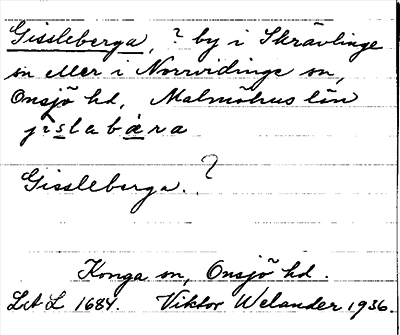 Gissleberga, ? by i Skrävlinge
sn eller i Norrvidinge sn,
Onsjö hd, Malmöhus län
jislabæra
Gissleberga. ?
Konga sn, Onsjö hd.
Lit L 1684. Viktor Welander 1936.